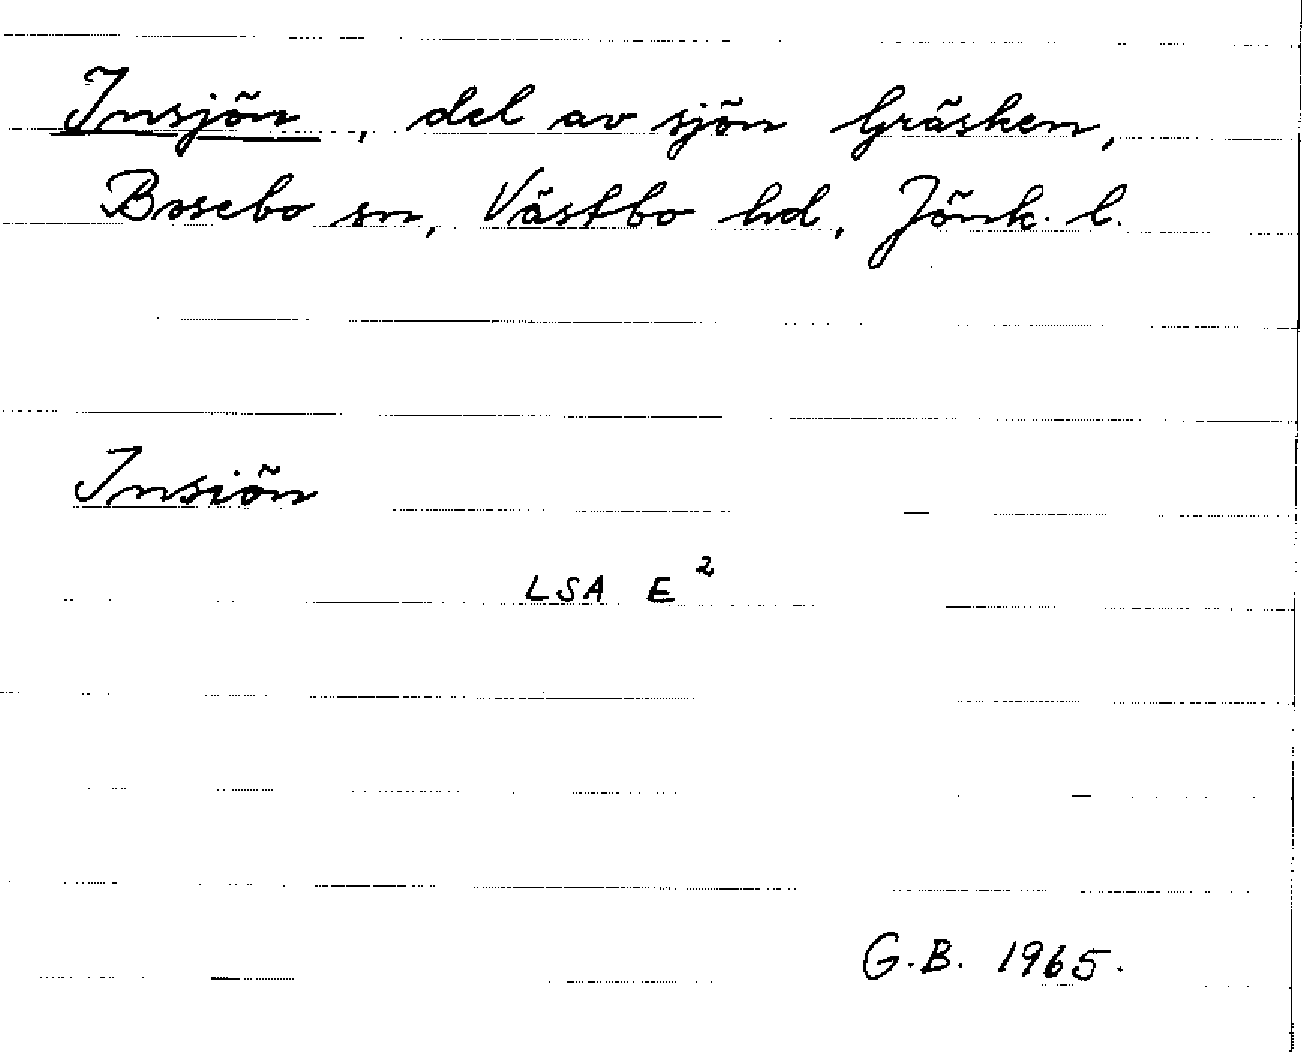 Insjön, del av sjön Gräsken,
Bosebo sn, Västbo hd, Jönk. l.
Insiön
LSA E²
G.B. 1965.